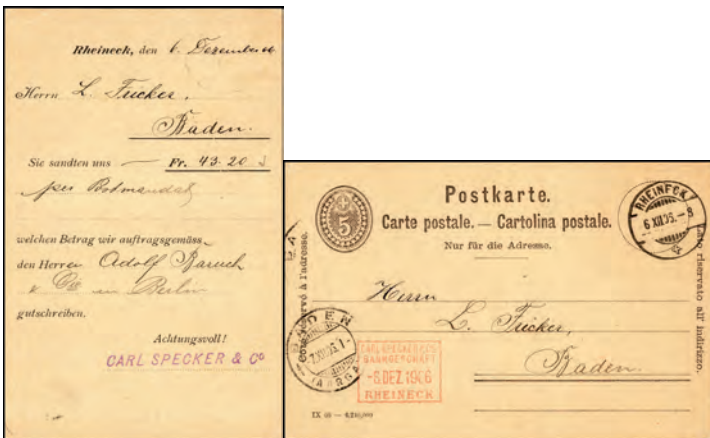 Rheineck, den 6. Dezember 06
Herrn L. Fricker,
Baden.
Sie sandten uns — Fr. 43.20
per Postmandat
welchen Betrag wir auftragsgemäss
den Herren Adolf Baruch
& Cie in Berlin
gutschreiben.
Achtungsvoll!
CARL SPECKER & Cº
Postkarte.
Carte postale. — Cartolina postale.
Nur für die Adresse.
5
RHEINECK
6 XII 06. - 8
Côté réservé à l'adresse.
Lato riservato all' indirizzo.
Herrn
L. Fricker,
Baden.
BADEN
7.XII.06. 1 -
(AARGAU)
CARL SPECKER & Cº
BANKGESCHÄFT
-6. DEZ. 1906
RHEINECK